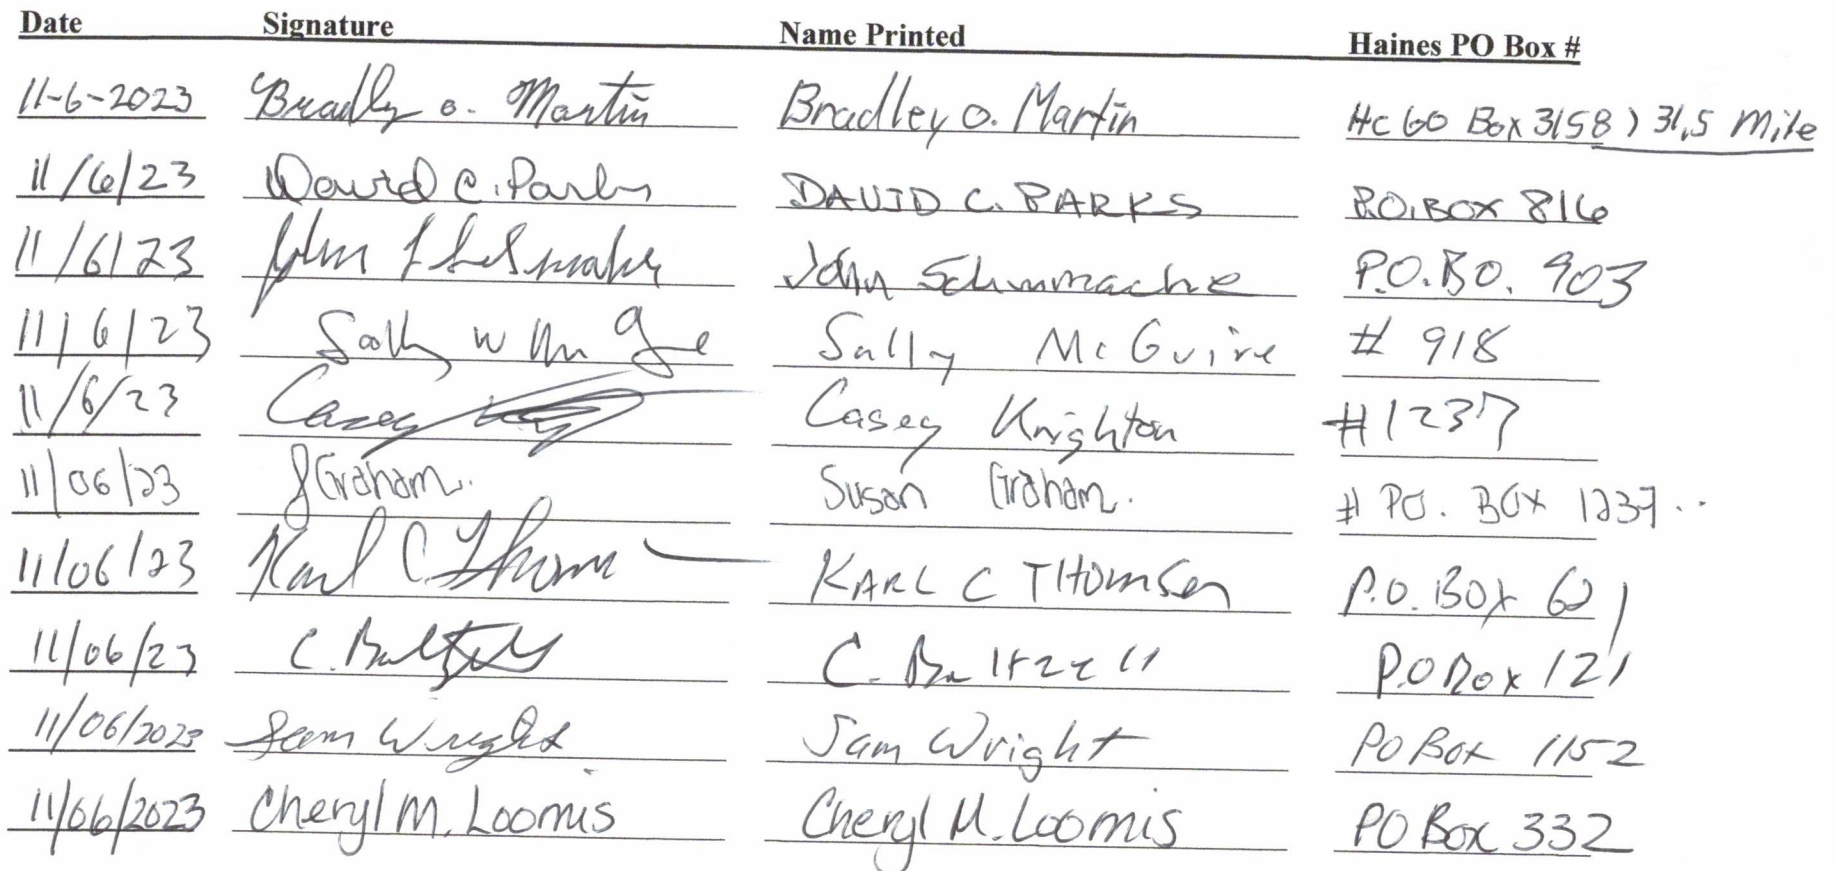 Date Signature Name Printed Haines PO Box #
11-6-2023 Bradley O. Martin Bradley O. Martin HC 60 Box 3158) 31.5 Mile
11/6/23 David C. Parks DAVID C. PARKS P.O. BOX 816
11/6/23 John Schumache P.O.BO. 903
11/6/23 Sally W Sally McGuire # 918
11/6/23 Casey Casey Knighton #1237
11/06/23 SGraham. Susan Graham. # PO. BOX 1237..
11/06/23 Karl C Thom KARL C THOMSEN P.O. BOX 621
11/06/23 C. Baltzell C. Baltzell P.O Box 121
11/06/2023 Sam Wright Sam Wright PO Box 1152
11/06/2023 Cheryl M. Loomis Cheryl M. Loomis PO Box 332